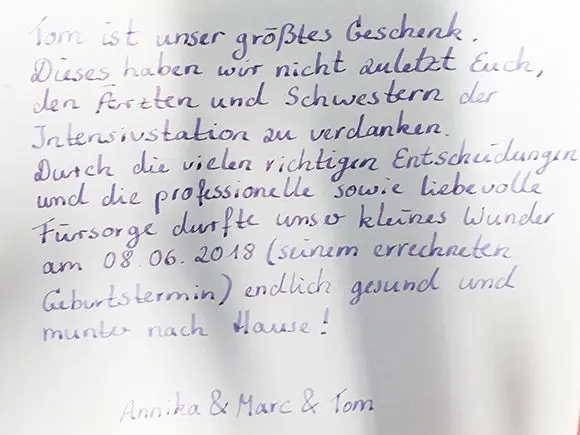 Tom ist unser größtes Geschenk.
Dieses haben wir nicht zuletzt Euch,
den Ärzten und Schwestern der
Intensivstation zu verdanken.
Durch die vielen richtigen Entscheidungen
und die professionelle sowie liebevolle
Fürsorge durfte unser kleines Wunder
am 08.06.2018 (seinem errechneten
Geburtstermin) endlich gesund und
munter nach Hause!
Annika & Marc & Tom